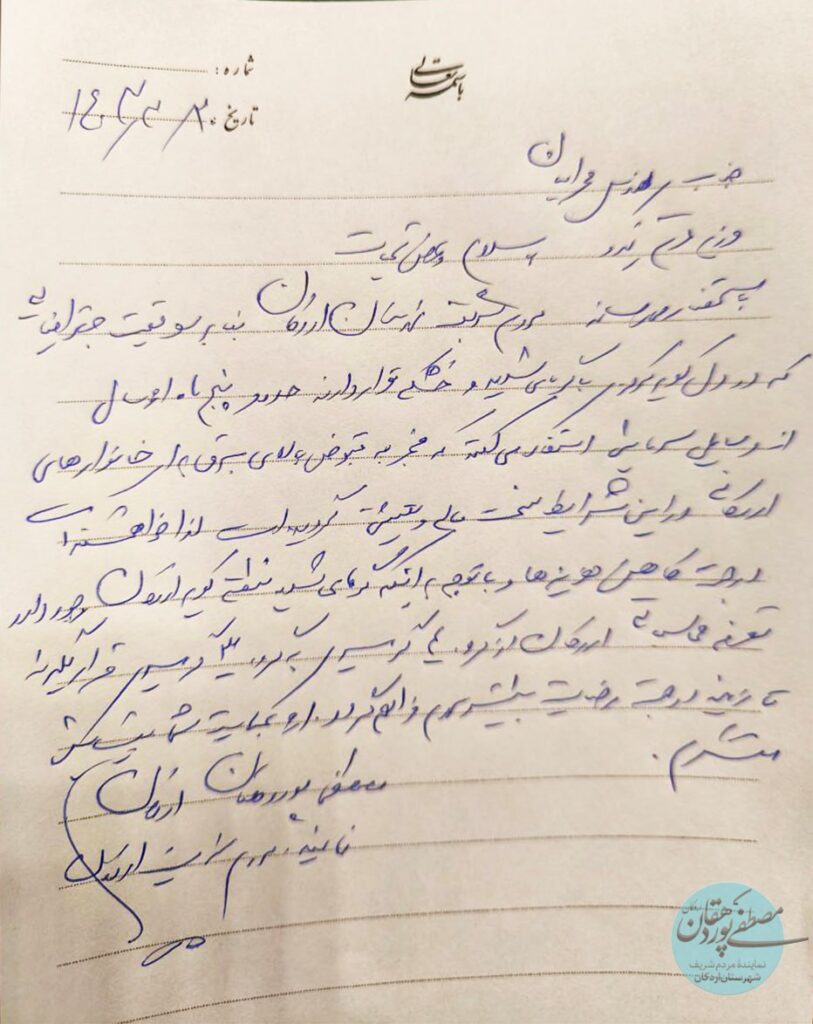 باسمه تعالی
شماره:
تاریخ: ۱۴۰۳/۳/۸
جناب مهندس محرابیان
وزیر محترم نیرو سلام و تحیت
باستحضار میرساند مردم شریف شهرستان اردکان بنا بر موقعیت جغرافیایی
که در دل کویر گرمای شدید و خشکی قرار دارند حدود پنج ماه از سال
از وسایل سرمایشی استفاده می کنند که منجر به قبوض بالای برق برای خانوارهای
اردکانی در این شرایط سخت مالی و معیشتی گردیده است لذا خواهشمند است
در جهت کاهش هزینه ها و با توجه به اینکه گرمای شدید کویر اردکان وجود دارد
تعرفه اردکان از گرمسیر به گرمسیر قرار گیرد
تا زمینه در جهت رضایت بیشتر مردم فراهم گردد. از عنایت شما پیشاپیش
متشکرم.
مصطفی پوردهقان اردکان
نماینده مردم شریف اردکان
مصطفی پوردهقان
اردکان
نماینده مردم شریف
شهرستان اردکان